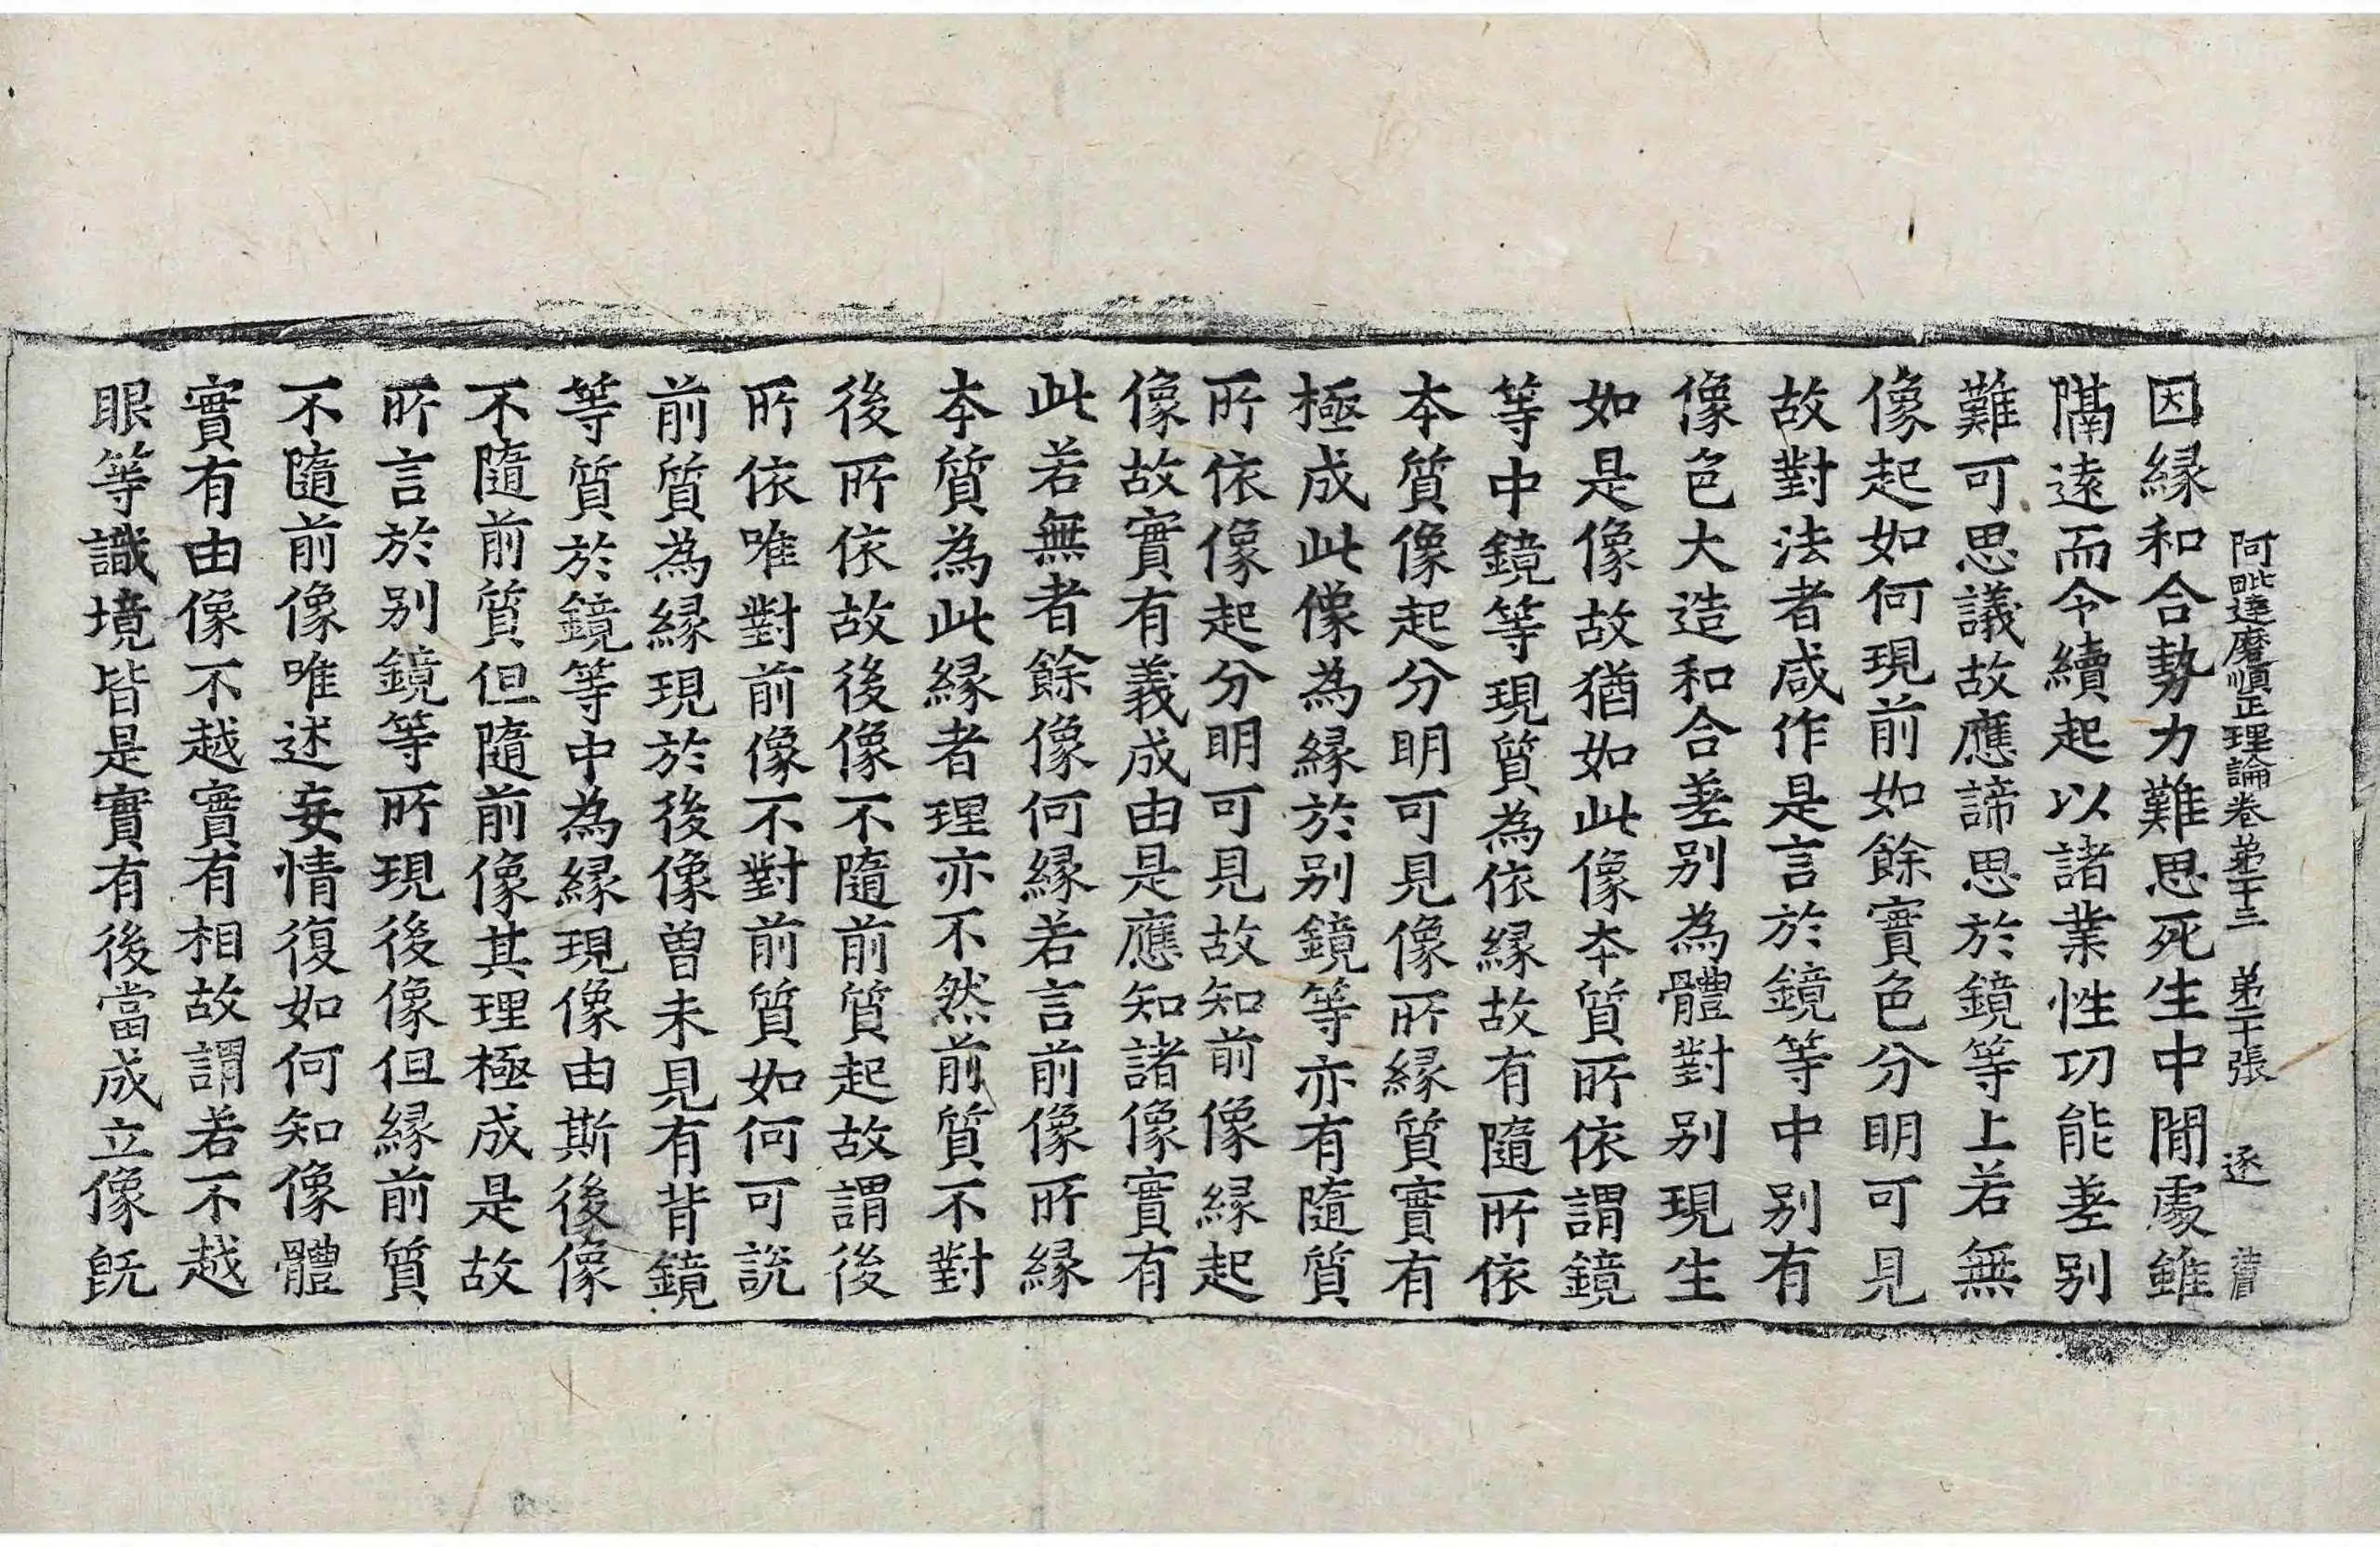 阿毗達磨順正理論卷苐二十三 苐二十張 逐
因縁和合勢力難思死生中閒處雖
隔遠而令續起以諸業性功能差别
難可思議故應諦思於鏡等上若無
像起如何現前如餘實色分明可見
故對法者咸作是言於鏡等中别有
像色大造和合差别為體對别現生
如是像故猶如此像本質所依謂鏡
等中鏡等現質為依縁故有隨所依
本質像起分明可見像所縁質實有
極成此像為縁於别鏡等亦有隨質
所依像起分明可見故知前像縁起
像故實有義成由是應知諸像實有
此若無者餘像何縁若言前像所縁
本質為此縁者理亦不然前質不對
後所依故後像不隨前質起故謂後
所依唯對前像不對前質如何可說
前質為縁現於後像曾未見有背鏡
等質於鏡等中為縁現像由斯後像
不隨前質但隨前像其理極成是故
所言於别鏡等所現後像但縁前質
不隨前像唯述妄情復如何知像體
實有由像不越實有相故謂若不越
眼等識境皆是實有後當成立像旣